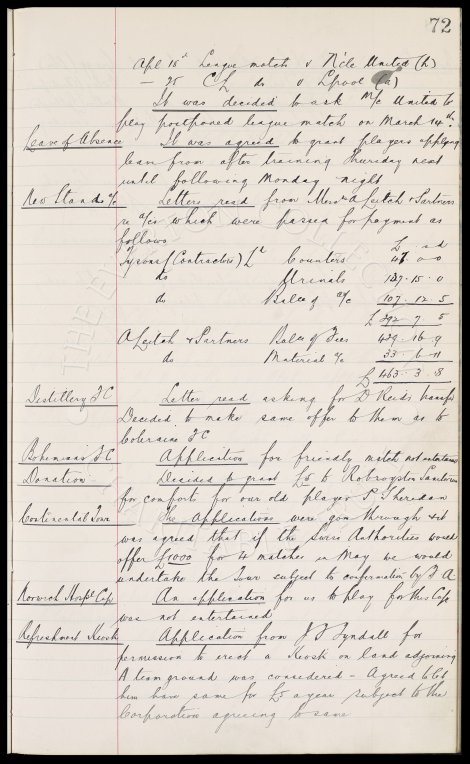 72
Apl 18th League match v N'cle United (h)
— 25 CL do v Lpool (a)
It was decided to ask M/c United to
play postponed league match on March 14th.
Leave of Absence It was agreed to grant players applying
leave from after training Thursday next
until following Monday night
New Stands a/c Letters read from Messrs A Leitch & Partners
re a/cs which were passed for payment as
follows £ s d
Tysons (Contractors) Ld Counters 47. 0. 0
do Urinals 137. 15. 0
do Balce of a/c 107. 12. 5
£ 292. 7. 5
A Leitch & Partners Balce of Fees 429. 16. 9
do Material a/c 33. 6. 11
£ 463. 3. 8
Distillery F C Letter read asking for D Reids transfer
Decided to make same offer to them as to
Coleraine F C
Bohemians F C Application for friendly match not entertained
Donation Decided to grant £5 to Robroyston Sanatorium
for comforts for our old player P. Sheridan
Continental Tour The Applications were gone through & it
was agreed that if the Swiss Authorities would
offer £1000 for 4 matches in May we would
undertake the Tour subject to confirmation by F A
Norwich Hosptl Cup An application for us to play for this Cup
was not entertained
Refreshment Kiosk Application from J Tyndall for
permission to erect a Kiosk on land adjoining
A team ground was considered – Agreed to let
him have same for £5 a year subject to the
Corporation agreeing to same